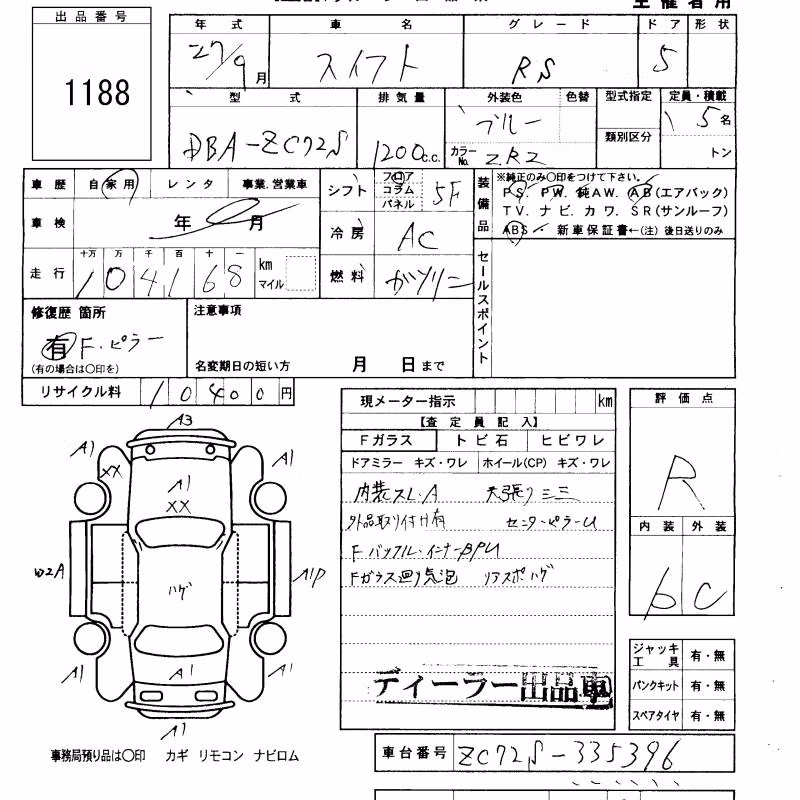 主催者用
出品番号
1188
年式 車名 グレード ドア 形状
27/9月 スイフト RS 5
型式 排気量 外装色 色替 型式指定 定員・積載
DBA-ZC72S 1200c.c. ブルー 類別区分 5名
カラーNo. ZR2 トン
車歴 自家用 レンタ 事業.営業車
シフト フロア コラム パネル 5F
装備品 ※純正のみ○印をつけて下さい。
PS. PW. 純AW. AB(エアバック)
TV. ナビ. カワ. SR(サンルーフ)
ABS・ 新車保証書←(注) 後日送りのみ
車検 年 月
冷房 AC
走行 十万 万 千 百 十 一
104168 km マイル
燃料 ガソリン
セールスポイント
修復歴 箇所 注意事項
有 F.ピラー
(有の場合は○印を) 名変期日の短い方 月 日まで
リサイクル料 10400円
現メーター指示 km
【査定員記入】
Fガラス トビ石 ヒビワレ
ドアミラー キズ・ワレ ホイール(CP) キズ・ワレ
内装スレ.A 天張りミミ
外品取り付け有 センターピラーU
Fバッフル.インナーBPU
Fガラス廻り気泡 リアスポハゲ
ディーラー出品車
評価点
R
内装 外装
b C
ジャッキ工具 有・無
パンクキット 有・無
スペアタイヤ 有・無
A3
A1 A1
XX A1
XX
A1P
ハゲ
A1 A1 A1
A1
事務局預り品は○印 カギ リモコン ナビロム
車台番号 ZC72S-335396